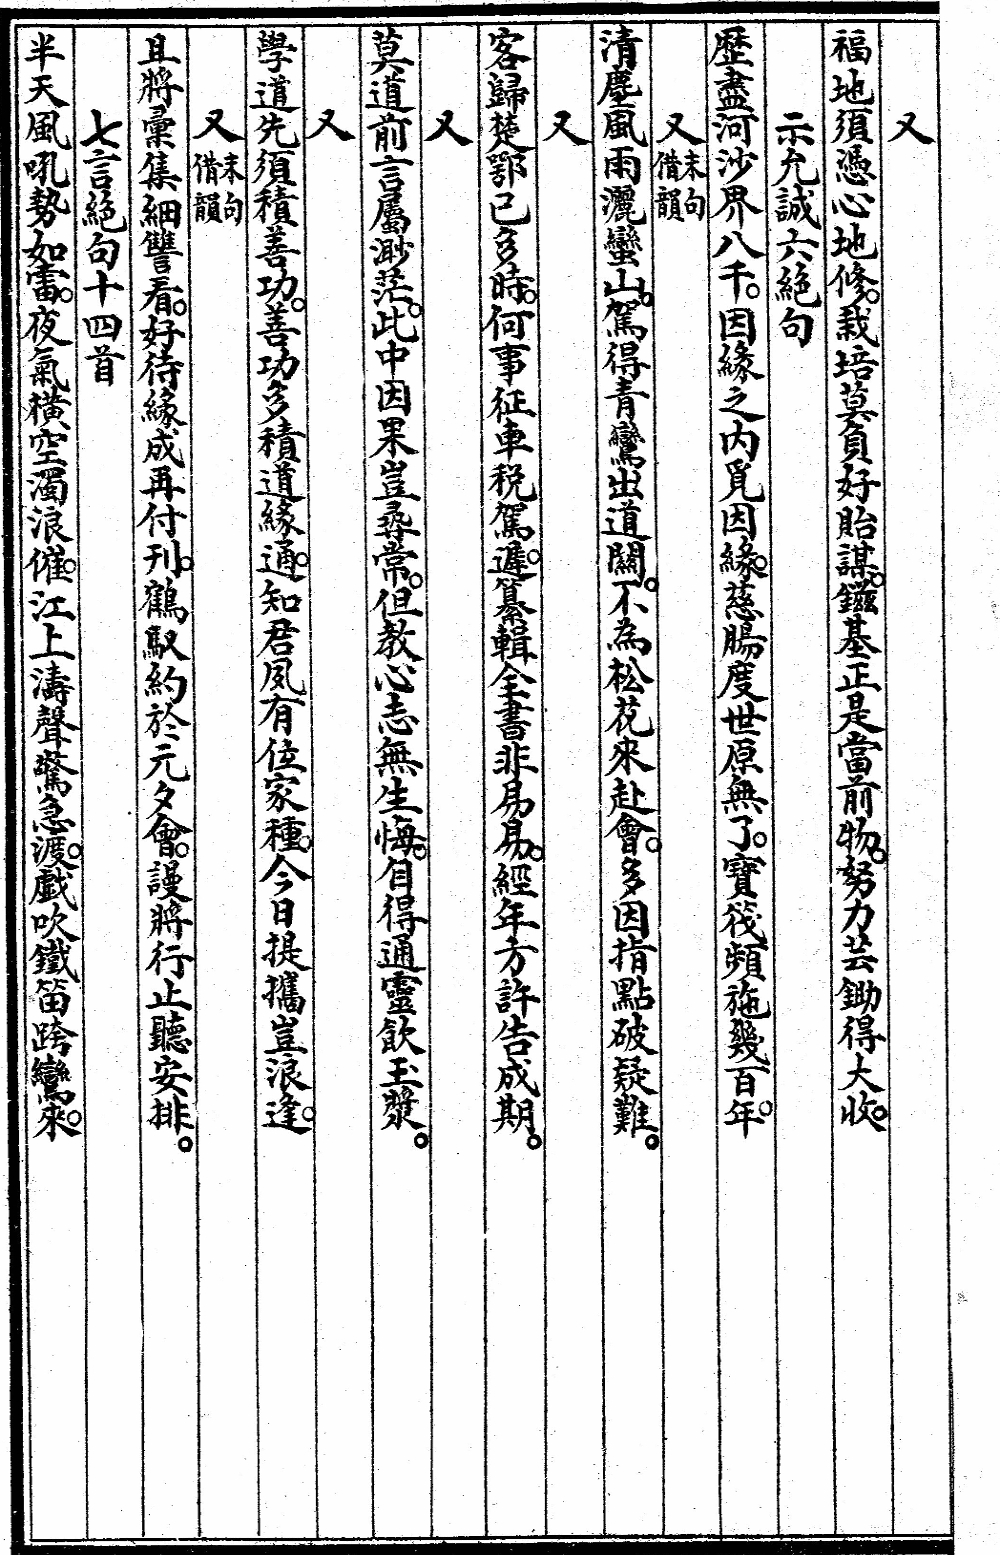 又
福地須憑心地修。栽培莫負好貽謀。鎡基正是當前物。努力芸鋤得大收。
示允誠六絕句
歷盡河沙界八千。因緣之内覓因緣。慈腸度世原無了。寶筏頻施幾百年。
又末句借韻
清塵風雨灑蠻山。駕得青鸞出道關。不為松花來赴會。多因指點破疑難。
又
客歸楚鄂已多時。何事征車税駕遲。纂輯全書非易易。經年方許告成期。
又
莫道前言屬渺茫。此中因果豈尋常。但教心志無生悔。自得通靈飲玉漿。
又
學道先須積善功。善功多積道緣通。知君夙有位家種。今日提攜豈浪逢。
又末句借韻
且將彙集細讐看。好待緣成再付刊。鶴馭約於元夕會。謾將行止聽安排。
七言絕句十四首
半天風吼勢如雷。夜氣橫空濁浪催。江上濤聲驚急渡。戲吹鐵笛跨鸞來。